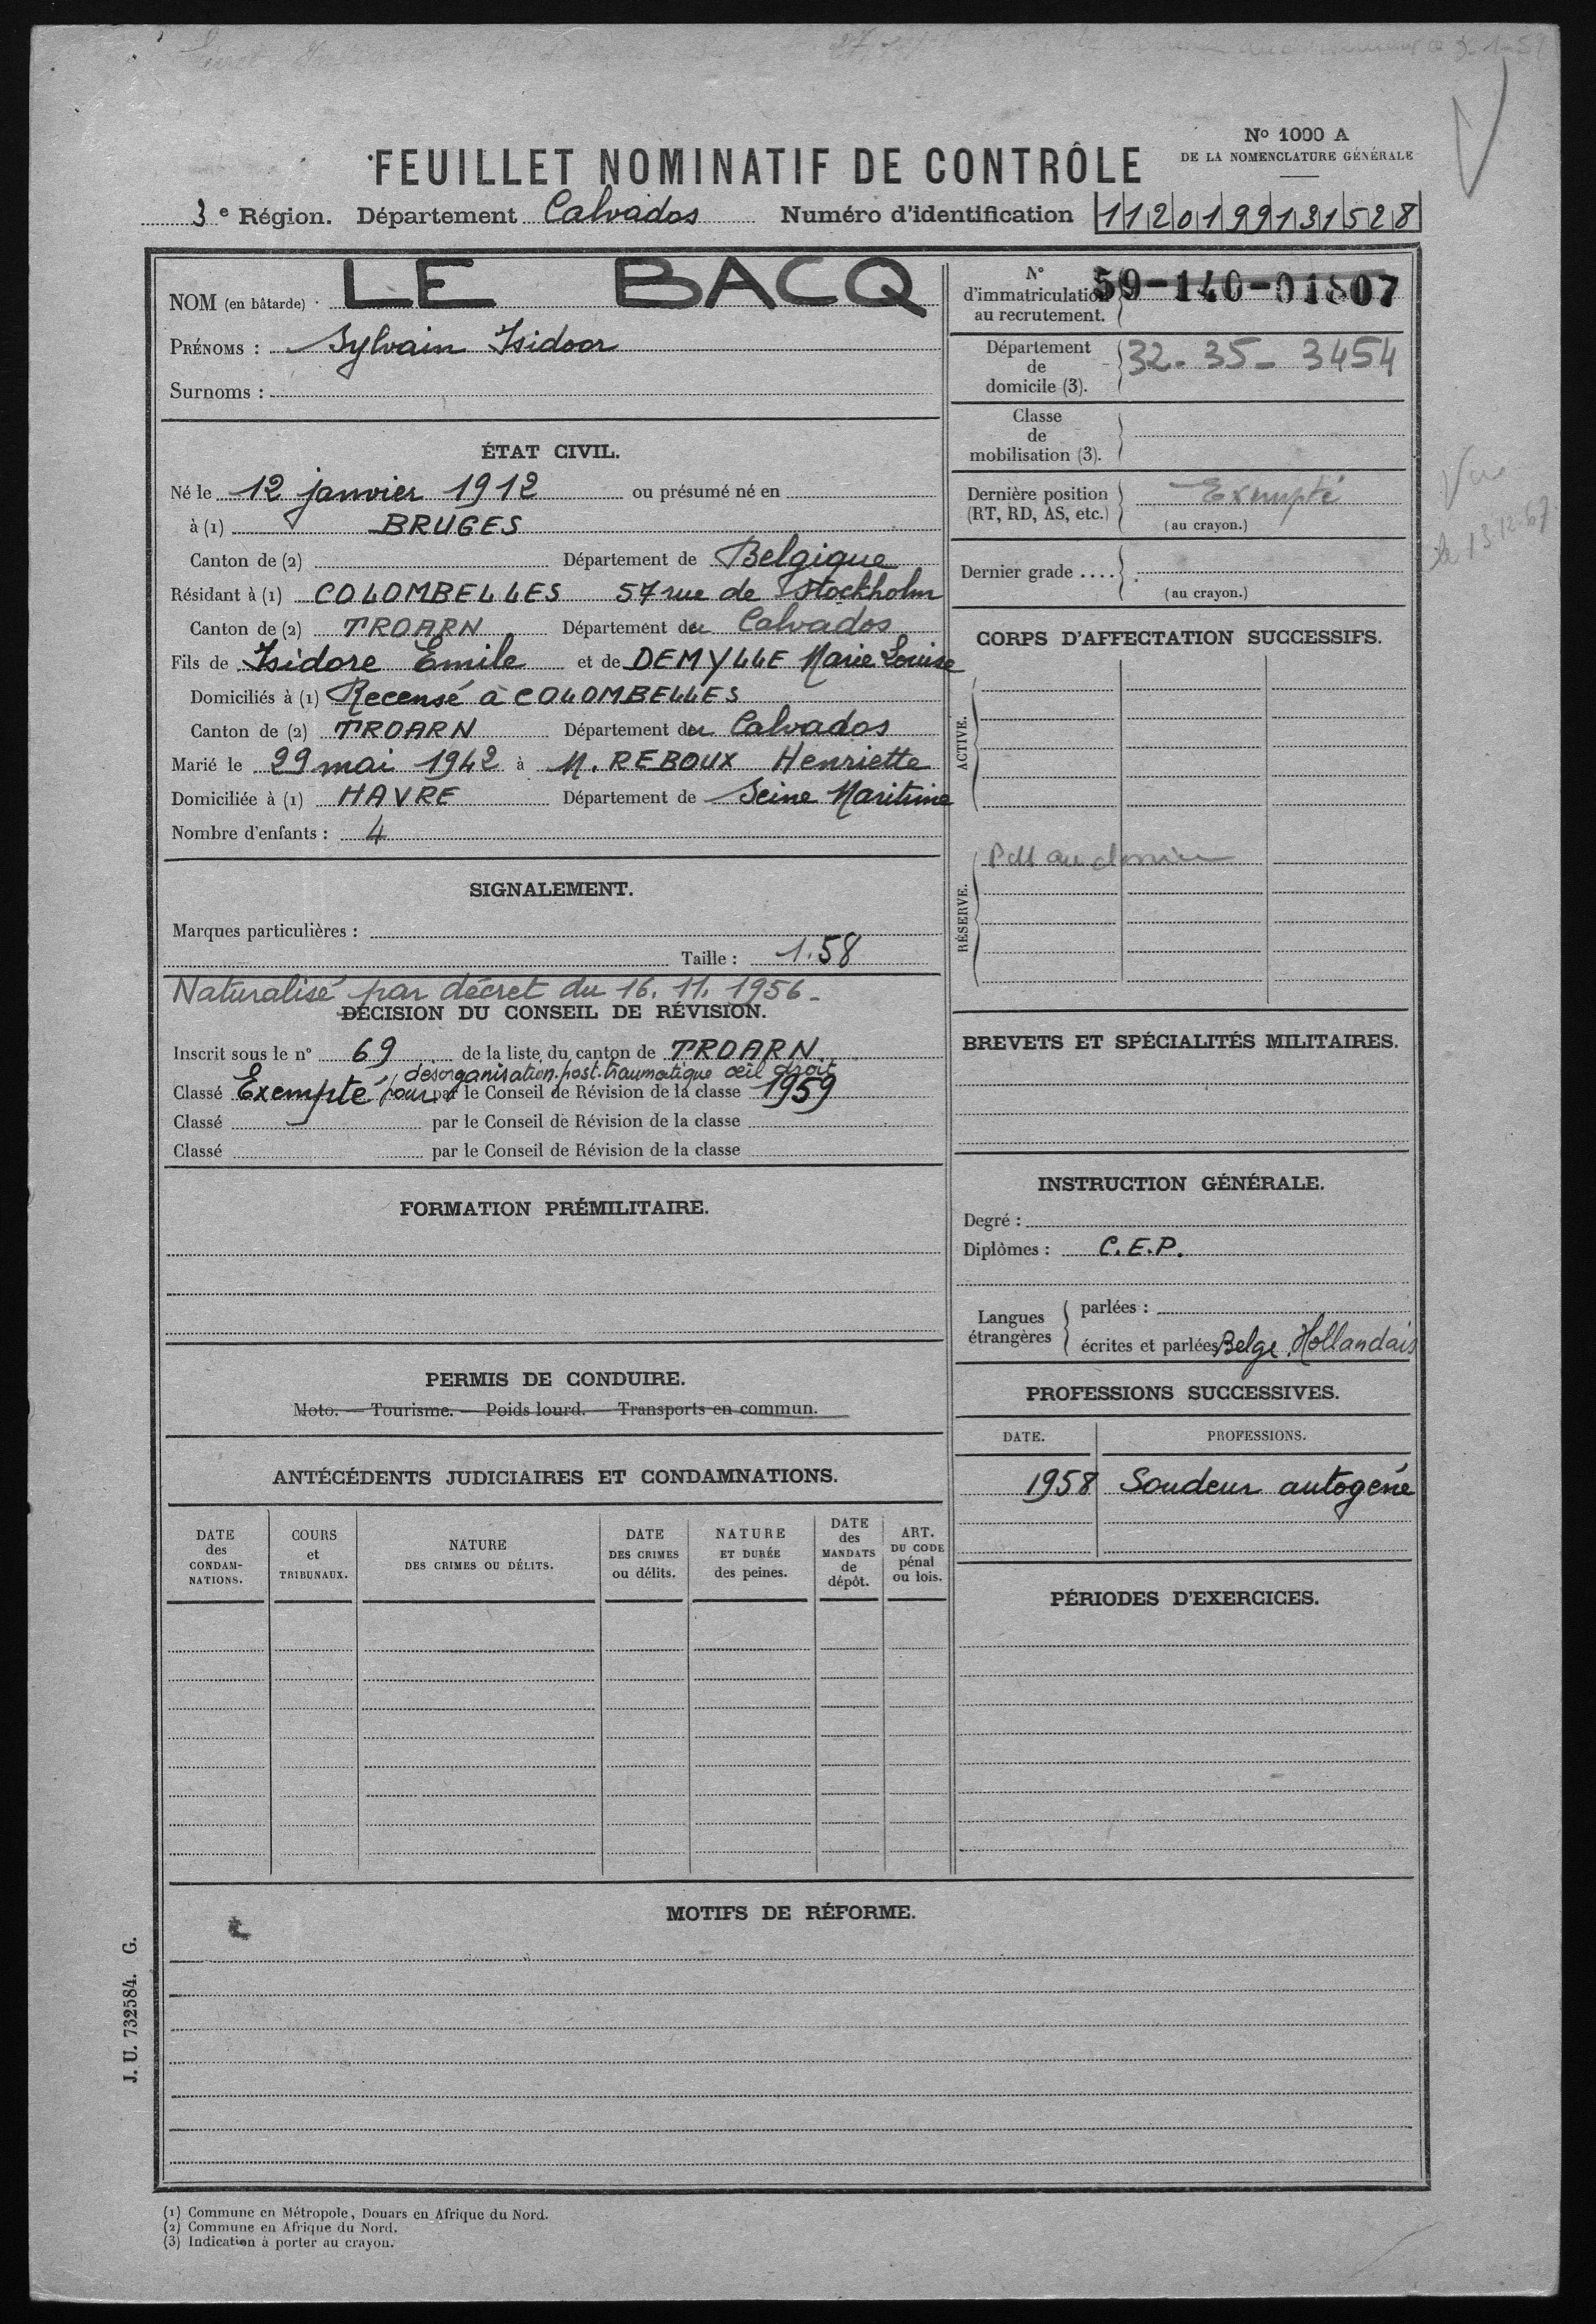 No 1000 A
DE LA NOMENCLATURE GÉNÉRALE
FEUILLET NOMINATIF DE CONTRÔLE
3e Région. Département Calvados Numéro d'identification 1120199131528
NOM (en bâtarde) LE BACQ
PRÉNOMS : Sylvain Isidoor
Surnoms :
ÉTAT CIVIL.
Né le 12 janvier 1912 ou présumé né en
à (1) BRUGES
Canton de (2) Département de Belgique
Résidant à (1) COLOMBELLES 57 rue de Stockholm
Canton de (2) TROARN Département du Calvados
Fils de Isidore Emile et de DEMYLLE Marie Louise
Domiciliés à (1) Recensé à COLOMBELLES
Canton de (2) TROARN Département du Calvados
Marié le 29 mai 1942 à M. REBOUX Henriette
Domiciliée à (1) HAVRE Département de Seine Maritime
Nombre d'enfants : 4
SIGNALEMENT.
Marques particulières :
Taille : 1.58
Naturalisé par décret du 16.11.1956.
DÉCISION DU CONSEIL DE RÉVISION.
Inscrit sous le n° 69 de la liste du canton de TROARN
desorganisation post. traumatique œil droit
Classé Exempté pour par le Conseil de Révision de la classe 1959
Classé par le Conseil de Révision de la classe
Classé par le Conseil de Révision de la classe
FORMATION PRÉMILITAIRE.
PERMIS DE CONDUIRE.
Moto. — Tourisme. — Poids lourd. — Transports en commun.
ANTÉCÉDENTS JUDICIAIRES ET CONDAMNATIONS.
DATE des CONDAM-NATIONS.
COURS et TRIBUNAUX.
NATURE DES CRIMES OU DÉLITS.
DATE DES CRIMES ou délits.
NATURE ET DURÉE des peines.
DATE des MANDATS de dépôt.
ART. DU CODE pénal ou lois.
N° d'immatriculation au recrutement. 59-140-01807
Département de domicile (3). 32-35-3454
Classe de mobilisation (3).
Dernière position (RT, RD, AS, etc.) Exempté
(au crayon.)
Vu
le 13.12.67
Dernier grade ....
(au crayon.)
CORPS D'AFFECTATION SUCCESSIFS.
ACTIVE.
RÉSERVE.
BREVETS ET SPÉCIALITÉS MILITAIRES.
INSTRUCTION GÉNÉRALE.
Degré :
Diplômes : C.E.P.
Langues étrangères
parlées :
écrites et parlées Belge Hollandais
PROFESSIONS SUCCESSIVES.
DATE. PROFESSIONS.
1958 Soudeur autogène
PÉRIODES D'EXERCICES.
MOTIFS DE RÉFORME.
J. U. 732584. G.
(1) Commune en Métropole, Douars en Afrique du Nord.
(2) Commune en Afrique du Nord.
(3) Indication à porter au crayon.